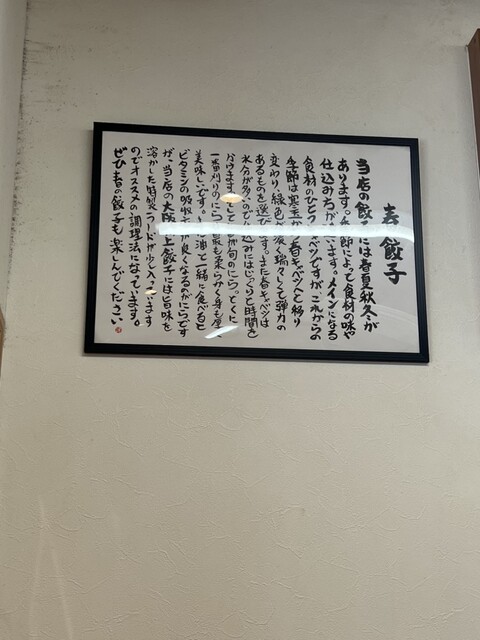 春餃子
当店の餃子には春夏秋冬が
あります。節によって食材の味や
仕込みちが います。メインになる
食材のひとつ ャベツですが、これからの
季節は寒玉か 春キャベツと移り
変わり、緑色が 瑞々しく弾力の
あるものを選び す。また春キャベツは
水分が多いので 込みにはじっくりと時間を
かけます。 して が旬のにら。とくに
一番刈りのにら 最も柔らかく身も厚く
美味しいです。 油と一緒に食べると
ビタミンの吸収 が良くなるのがにらです
が、当店の大阪 上餃子には旨味を
溶かした特製ラードが少し入っています
のでオススメの調理法になっています。
ぜひ春の餃子も楽しんでください